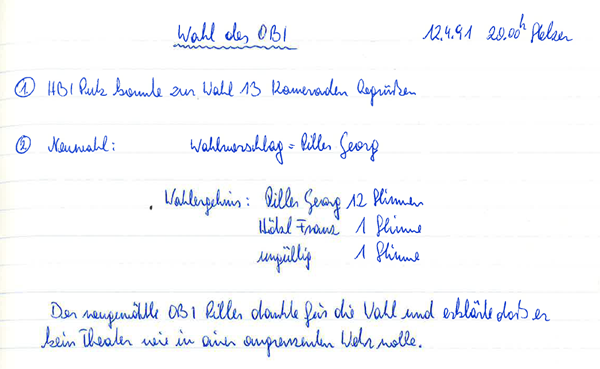 Wahl des OBI 12.4.91 20.00h Stelzer
① HBI Putz konnte zur Wahl 13 Kameraden begrüßen
② Neuwahl: Wahlvorschlag = Piller Georg
Wahlergebnis: Piller Georg 12 Stimmen
Hötzl Franz 1 Stimme
ungültig 1 Stimme
Der neugewählte OBI Piller dankte für die Wahl und erklärte daß er
kein Theater wie in einer angrenzenten Wehr wolle.